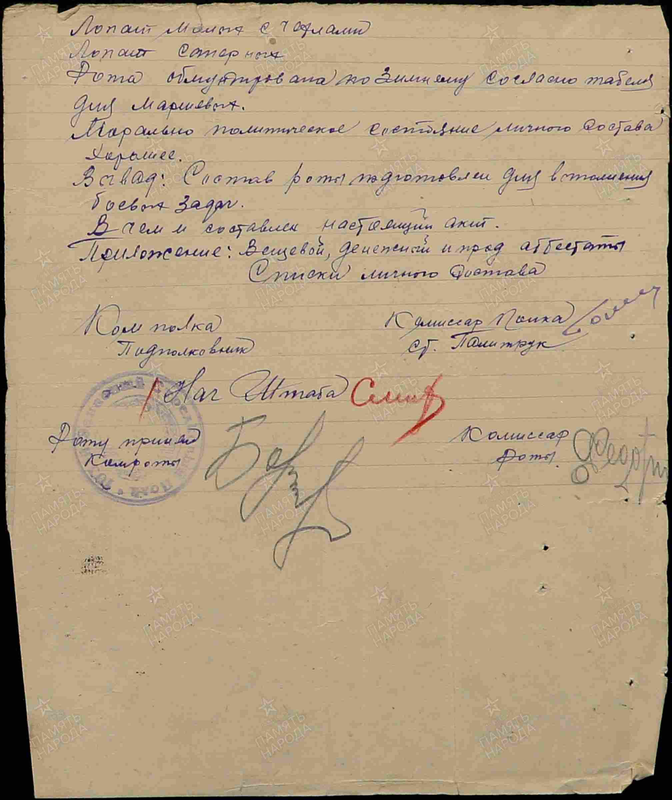 Лопат малых с чехлами
Лопат саперных
Рота обмундирована по зимнему согласно табеля
для маршевых.
Морально политическое состояние личного состава
хорошее.
Вывод: Состав роты подготовлен для выполнения
боевых задач.
В чем и составлен настоящий акт.
Приложение: Вещевой, денежный и прод аттестаты
Списки личного состава
Ком полка
Подполковник
Комиссар Полка
ст. Политрук
Нач Штаба
Роту принял
Комроты
Комиссар
роты
ПАМЯТЬ НАРОДА